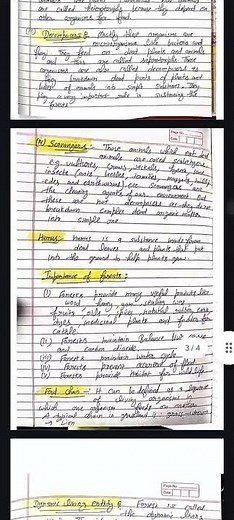 are called heterotrophs because they depend on
other organisms for food.
(iii) Decomposers :- Mostly these organisms are
microorganisms like bacteria and
fungi. They feed on dead plants and animals
and thus are called saprotrophs. These
organisms are also called decomposers as
they breakdown dead parts of plants and
bodies of animals into simple substances. They
play a very important role in sustaining the
forests.
(iv) Scavengers :- Those animals which eat dead
animals are called scavengers
e.g. vultures, crows, jackals, hyena, some
insects (ants, beetles, termites, maggots,
and earthworms) etc. Scavengers are
the cleaning agents of our environment. But
these are not decomposers as they do not
breakdown complex dead organic matter
into simple one.
Humus :- Humus is a substance made from
dead leaves and plants that put
into the ground to help plants grow.
Importance of forests :
(i) Forests provide many useful products like
wood, honey, sealing wax,
fruits, gums, spices, natural rubber,
dyes, medicinal plants and fodder for
cattle.
(ii) Forests maintain balance b/w
and carbon dioxide.
3/4
(iii) Forests maintain water cycle.
(iv) Forests prevent
(v) Forests provide habitat for wild life.
Food chain :- It can be defined as a
of living organisms in
which one organism feeds on
A typical chain in grassland is grass → 
→ Lion
Page No.
Date
Dynamic living entity :- Forest is called
the dynamic living